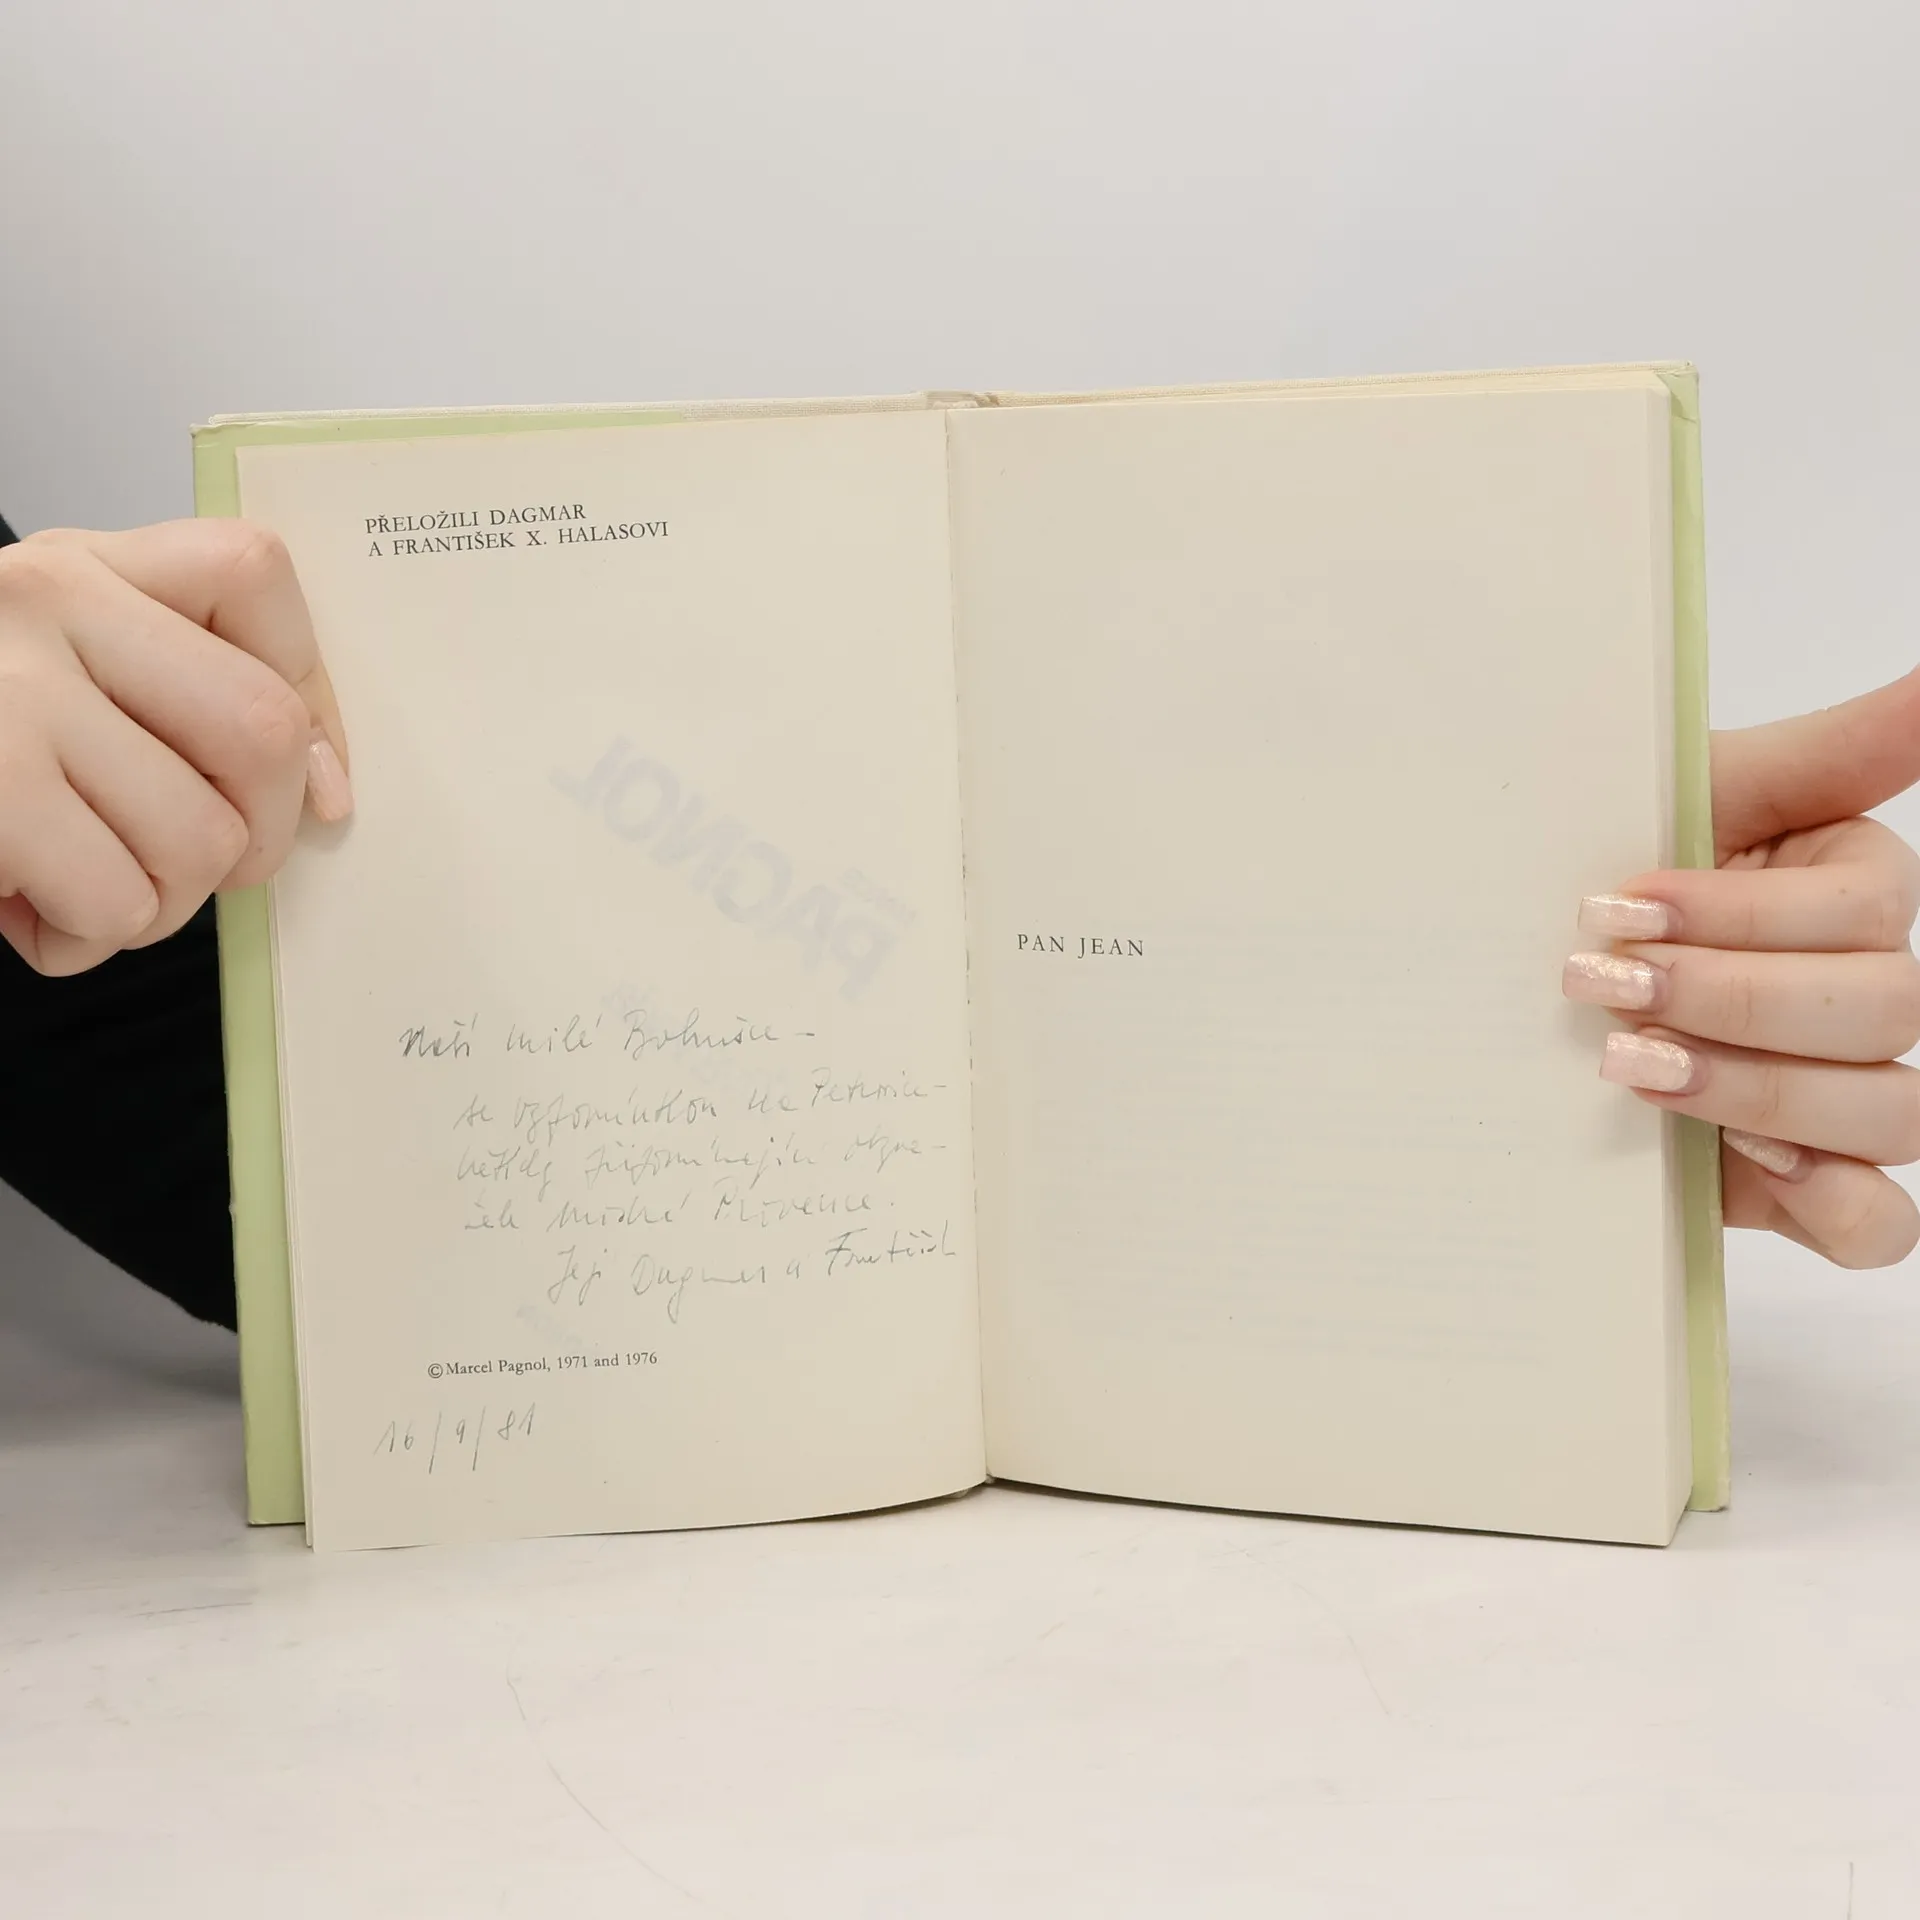 PŘELOŽILI DAGMAR
A FRANTIŠEK X. HALASOVI
PAGNOL
Naší milé Bohušce –
se vzpomínkou na
někdy připomínající
modré Provence.
Její Dagmar a František
© Marcel Pagnol, 1971 and 1976
16/9/81
PAN JEAN